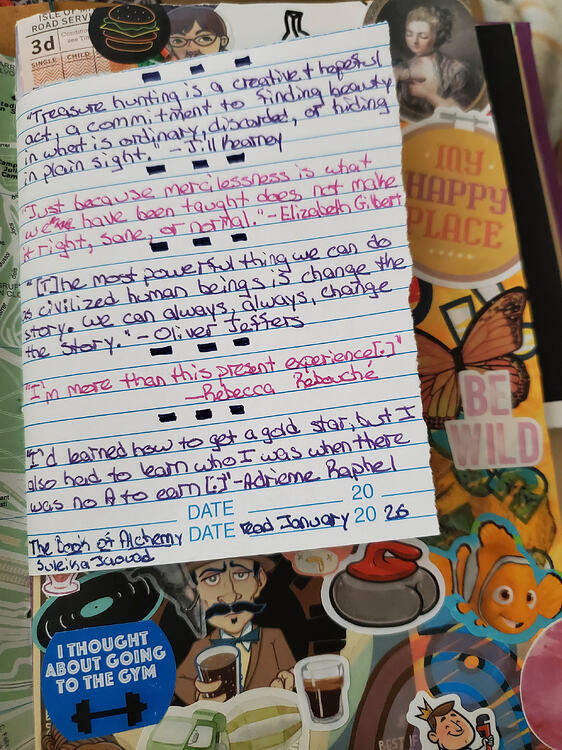 ISLE OF
ROAD SERV
3d
SINGLE
CHILD
"Treasure hunting is a creative & hopeful
act, a commitment to finding beauty
in what is ordinary, discarded, or hiding
in plain sight." - Jill Kearney
"Just because mercilessness is what
we have been taught does not make
it right, sane, or normal." - Elizabeth Gilbert
"[T]he most powerful thing we can do
as civilized human beings is change the
story. We can always, always, change
the story." - Oliver Jeffers
"I'm more than this present experience[.]"
- Rebecca Rebouché
"I'd learned how to get a gold star, but I
also had to learn who I was when there
was no A to earn[.]" - Adrienne Raphel
DATE 20
DATE read January 20 26
The Book of Alchemy
Suleika Jaouad
MY
HAPPY
PLACE
BE
WILD
I THOUGHT
ABOUT GOING
TO THE GYM
BEST